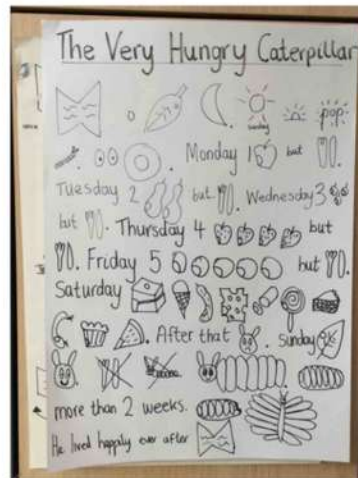 The Very Hungry Caterpillar
sunday pop
Monday 1 but
Tuesday 2 but . Wednesday 3
but . Thursday 4 but
. Friday 5 but .
Saturday
. After that . Sunday
more than 2 weeks.
He lived happily ever after